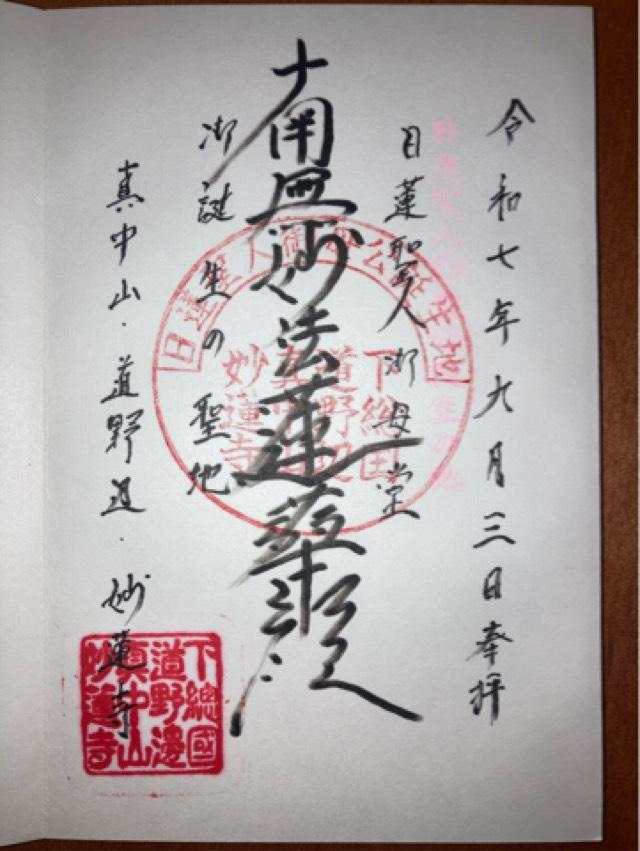 令和七年九月三日奉拝
日蓮聖人御母堂
南無妙法蓮華経
御誕生の聖地
真中山・道野辺・妙蓮寺
日蓮聖人御母公誕生地
下総国
道野辺
真中山
妙蓮寺
下總國
道野邉
真中山
妙蓮寺